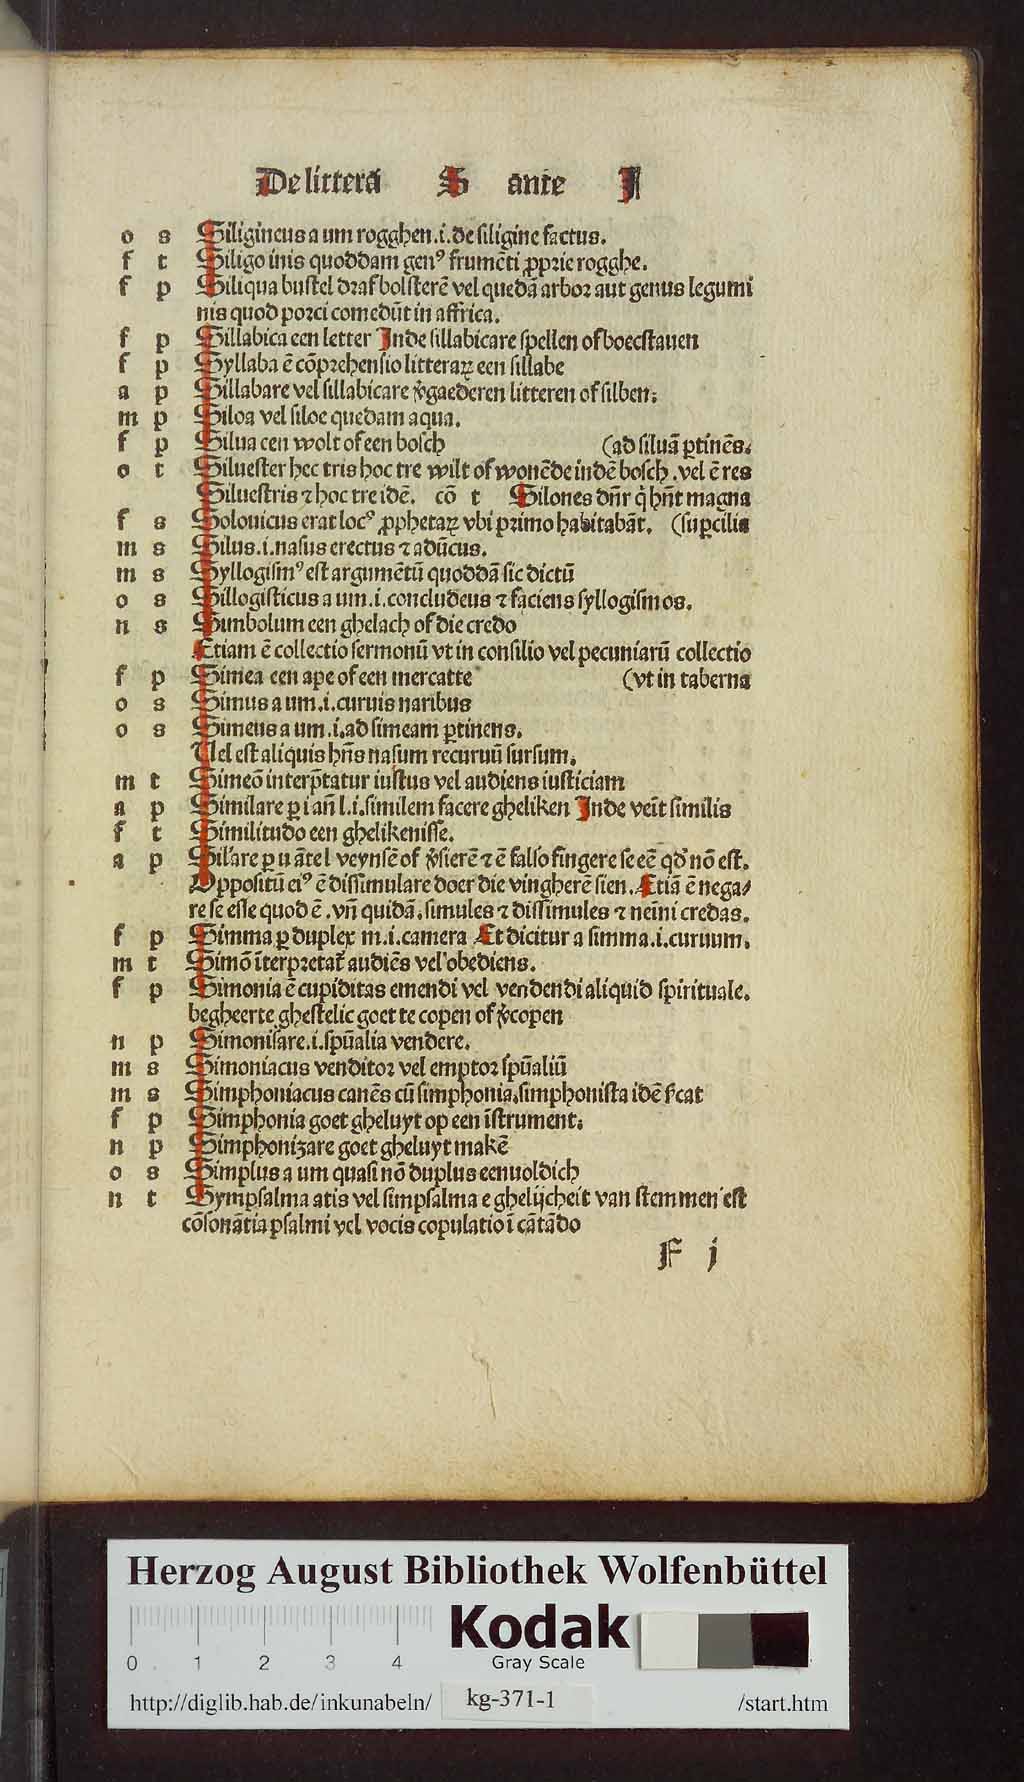 De litterā S ante I
o s Siligineus a um rogghen.i.de siligine factus.
f t Siligo inis quoddam genꝰ frumēti ꝓprie rogghe.
f p Siliqua bustel draf bolsterē vel quedā arbor aut genus legumi
nis quod porci comedūt in affrica.
f p Sillabica een letter Inde sillabicare spellen of boecstauen
f p Syllaba ē cōprehensio litteraꝝ een sillabe
a p Sillabare vel sillabicare v̄gaederen litteren of silben.
m p Siloa vel siloe quedam aqua.
f p Silua een wolt of een bosch (ad siluā ꝑtinēs.
o t Siluester hec tris hoc tre wilt of wonēde indē bosch.vel ē res
Siluestris ⁊ hoc tre idē. cō t Silones dn̄r q̇ hn̄t magna
f s Solonicus erat locꝰ ꝓphetaꝝ vbi primo habitabāt. (suꝑcilia
m s Silus.i.nasus erectus ⁊ adūcus.
m s Syllogismꝰ est argumētū quoddā sic dictū
o s Sillogisticus a um.i.concludeus ⁊ faciens syllogismos.
n s Simbolum een ghelach of die credo
Etiam ē collectio sermonū vt in consilio vel pecuniarū collectio
f p Simea een ape of een mercatte (vt in taberna
o s Simus a um.i.curuis naribus
o s Simeus a um.i.ad simeam ꝑtinens.
Uel est aliquis hn̄s nasum recuruū sursum.
m t Simeō interp̄tatur iustus vel audiens iusticiam
a p Similare ꝑ i an̄ l.i.similem facere gheliken Inde veīt similis
f t Similitudo een ghelikenisse.
a p Sil'are ꝑ u āte l veynsē of v̄sierē ⁊ ē falso fingere se eē qd' nō est.
Oppositū eiꝰ ē dissimulare doer die vingherē sien. Etiā ē nega/
re se esse quod ē.vn̄ quidā.simules ⁊ dissimules ⁊ neīni credas.
f p Simma ꝑ duplex m.i.camera Et dicitur a simma.i.curuum.
m t Simō īterpretat᷑ audiēs vel obediens.
f p Simonia ē cupiditas emendi vel vendendi aliquid spirituale.
begheerte ghestelic goet te copen of v̄copen
n p Simonisare.i.spūalia vendere.
m s Simoniacus venditor vel emptor spūaliū
m s Simphoniacus canēs cū simphonia.simphonista idē s̄cat
f p Simphonia goet gheluyt op een īstrument.
n p Simphonizare goet gheluyt makē
o s Simplus a um quasi nō duplus eenuoldich
n t Sympsalma atis vel simpsalma e ghelijcheit van stemmen est
cōsonātia psalmi vel vocis copulatio ī cātādo
F j
Herzog August Bibliothek Wolfenbüttel
Kodak
0 1 2 3 4 Gray Scale
http://diglib.hab.de/inkunabeln/ kg-371-1 /start.htm